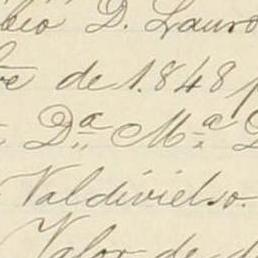 D. Lauro
de 1.848 p
D.ª M.ª D
Valdivielso.
Valor de d